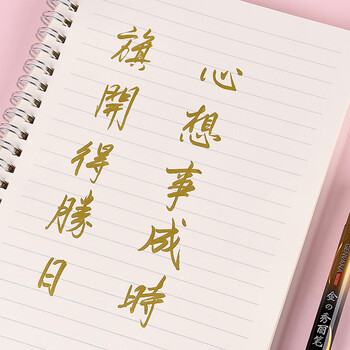 心想事成時
旗開得勝日
金の秀丽笔